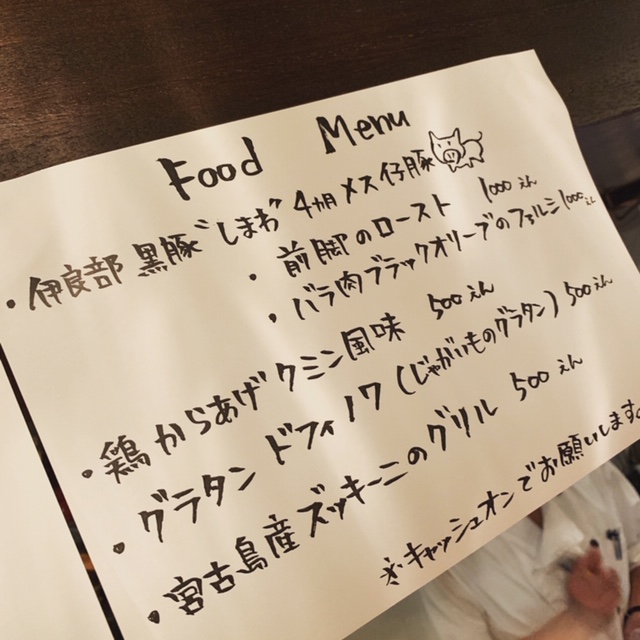 Food Menu
・伊良部 黒豚"しまわ" 4ヵ月 メス仔豚
・前脚のロースト 1000えん
・バラ肉ブラックオリーブのフェルシ 1000えん
・鶏からあげ クミン風味 500えん
・グラタン ドフィノワ (じゃがいものグラタン) 500えん
・宮古島産 ズッキーニのグリル 500えん
※キャッシュオンでお願いします。